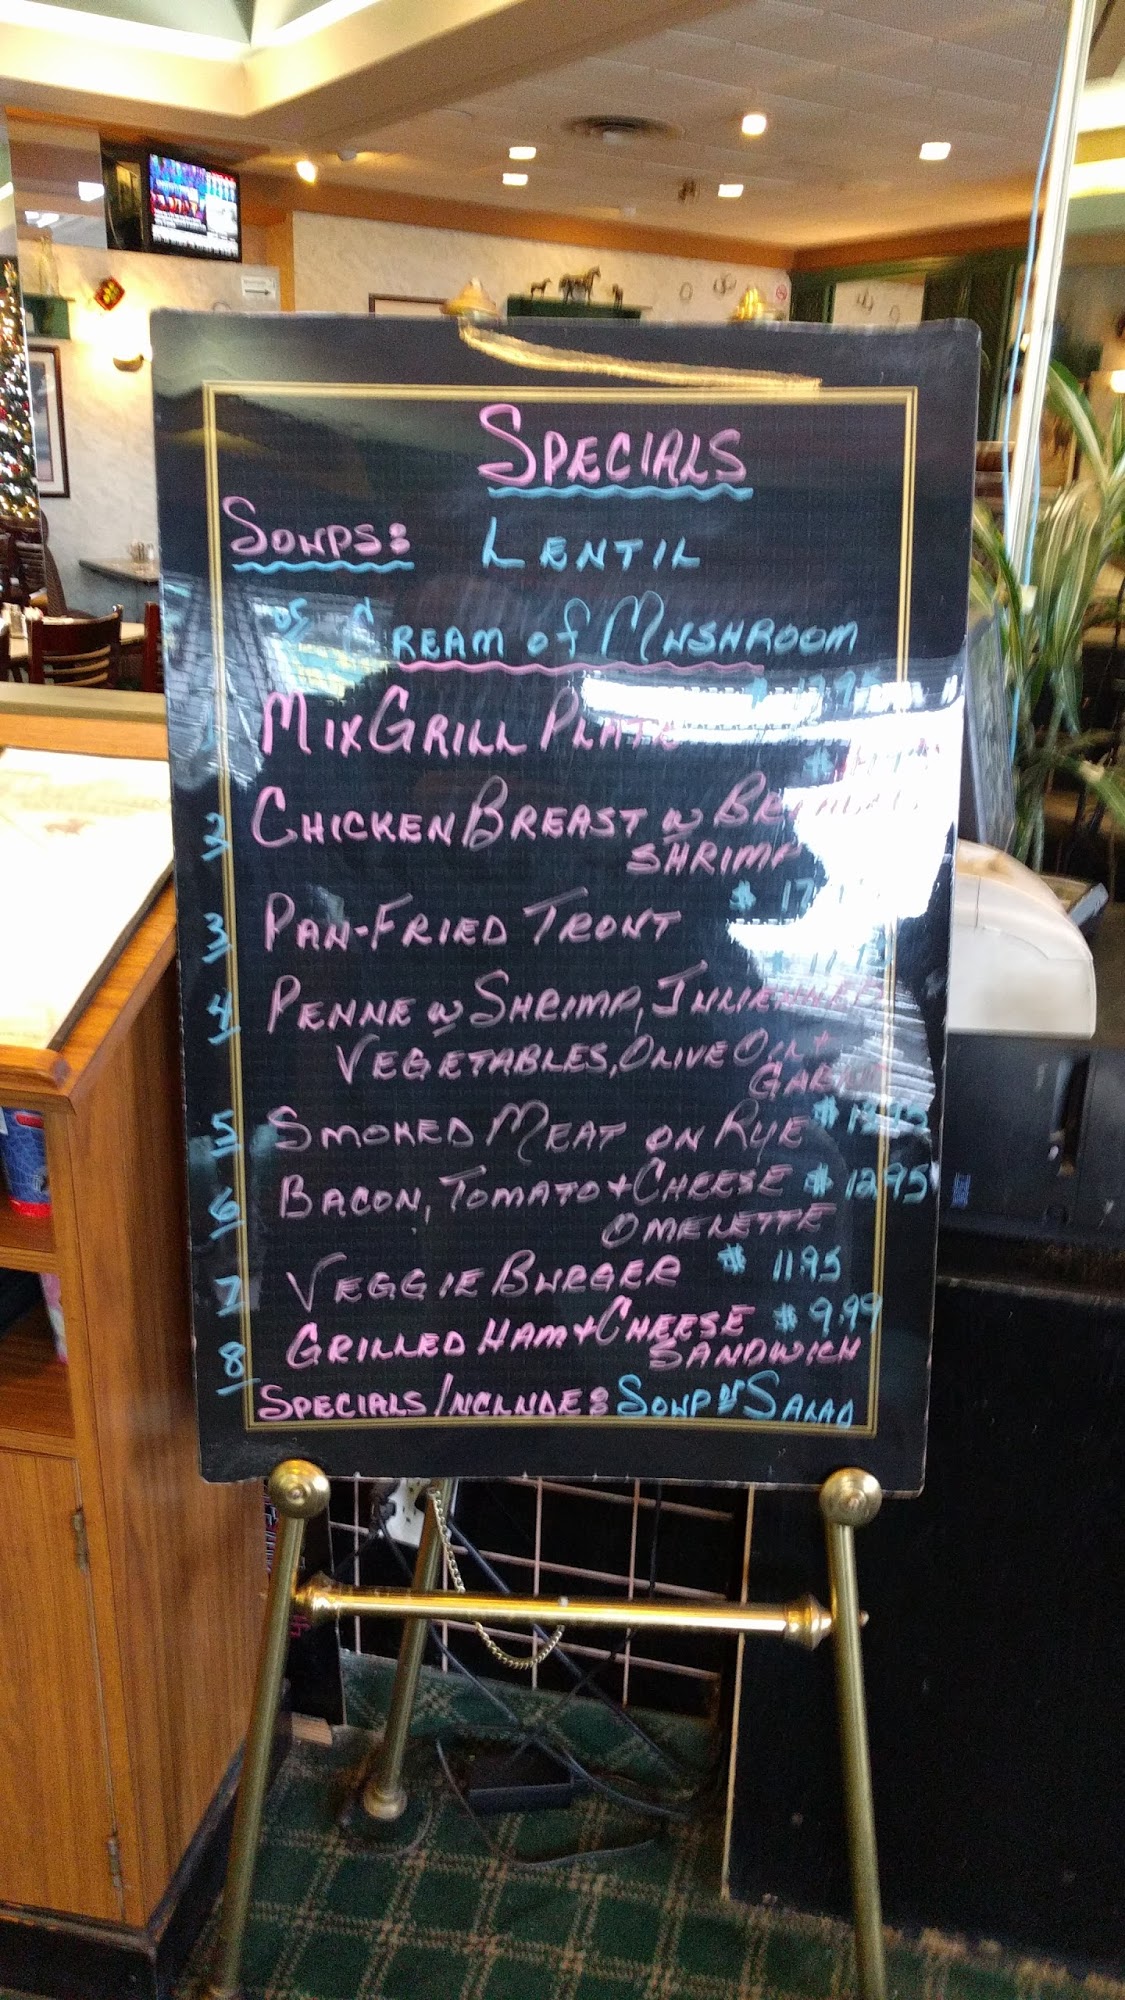 SPECIALS
SOUPS: LENTIL
or CREAM of MUSHROOM
MIX GRILL PLATE
2 CHICKEN BREAST w
SHRIMP
3 PAN-FRIED TROUT $
4 PENNE w SHRIMP, JULIENNED
VEGETABLES, OLIVE OIL +
GARLIC
5 SMOKED MEAT ON RYE $13.95
6 BACON, TOMATO + CHEESE $12.95
OMELETTE
7 VEGGIE BURGER $11.95
8 GRILLED HAM + CHEESE $9.99
SANDWICH
SPECIALS INCLUDE: SOUP or SALAD